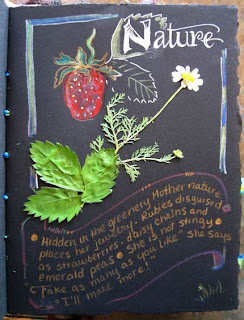 Nature
Hidden in the greenery Mother nature
places her jewelry. Rubies disguised
as strawberries - daisy chains and
emerald peas She is not stingy
"Take as many as you like" She says
"I'll make more!"